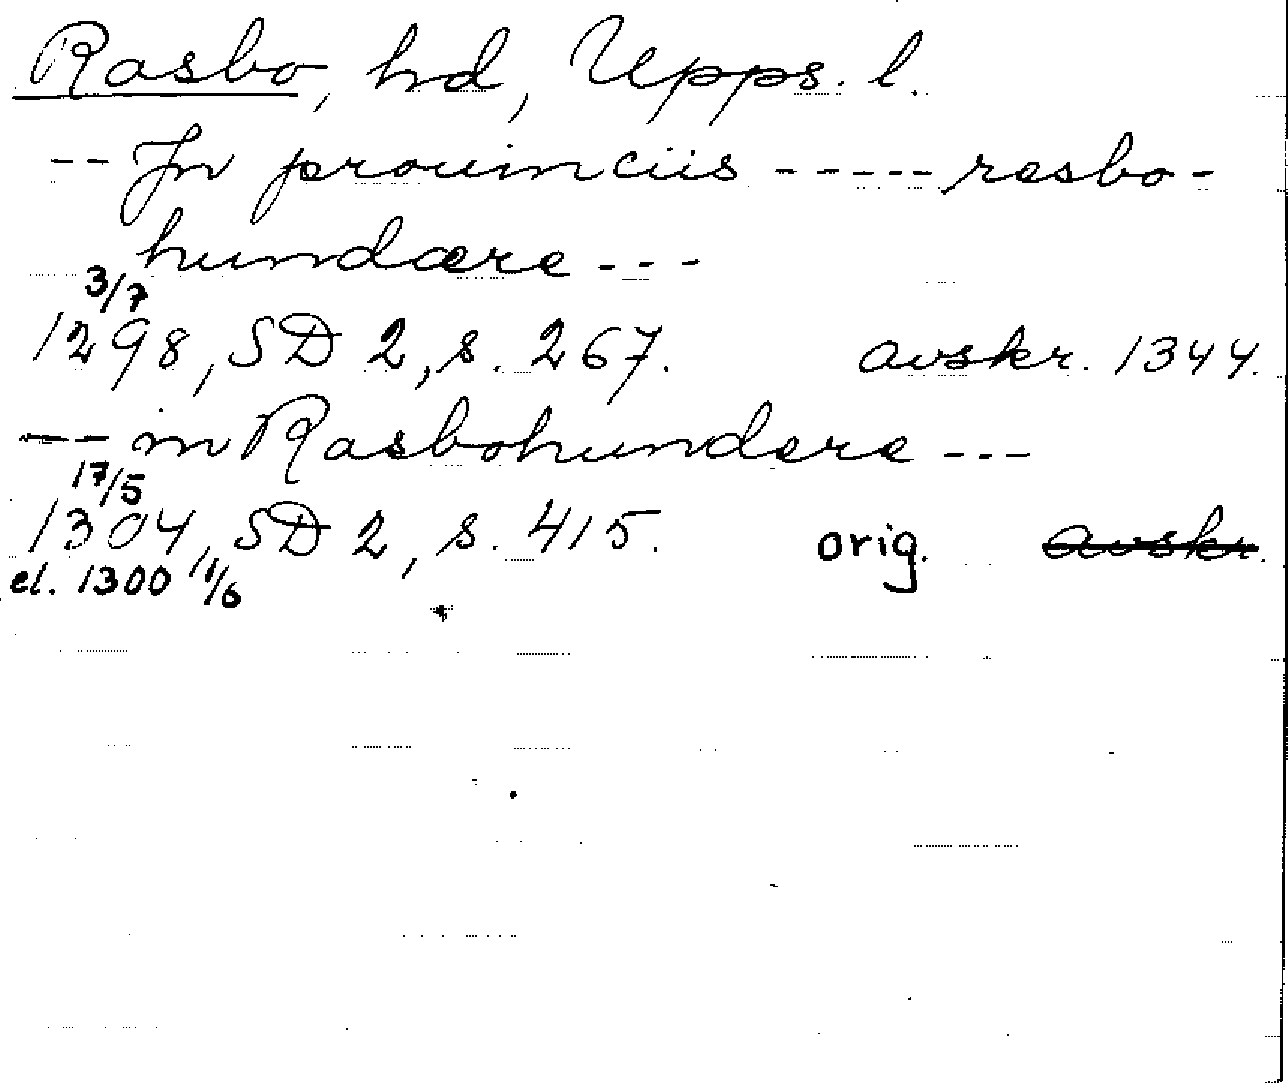 Rasbo, hd, Upps. l.
-- Jn prouinciis ----- resbo-
hundære ---
3/7
1298, SD 2, s. 267. avskr. 1344.
--- in Rasbohundere ---
17/5
1304, SD 2, s. 415. orig. avskr.
el. 1300 11/6